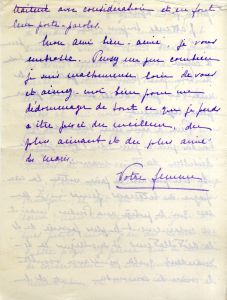 traitent avec considération et en font
leur porte-paroles.
Mon ami bien-aimé, je vous
embrasse. Pensez un peu combien
je suis malheureuse loin de vous
et aimez-moi bien pour me
dédommager de tout ce que je perds
à être privé du meilleur, du
plus aimant et du plus aimé
des maris.
Votre femme